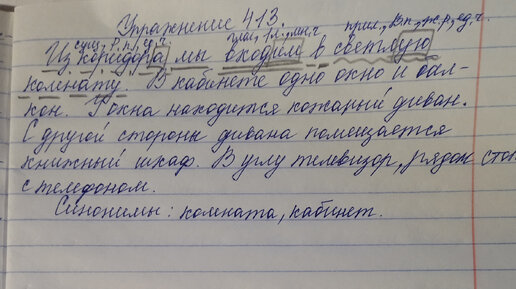 Упражнение 413.
сущ., Р.п., ед.ч. глаг., 1л., мн.ч прил., В.п., ж.р., ед.ч.
Из коридора мы входим в светлую
комнату. В кабинете одно окно и бал-
кон. У окна находится кожаный диван.
С другой стороны дивана помещается
книжный шкаф. В углу телевизор, рядом стол
с телефоном.
Синонимы: комната, кабинет.